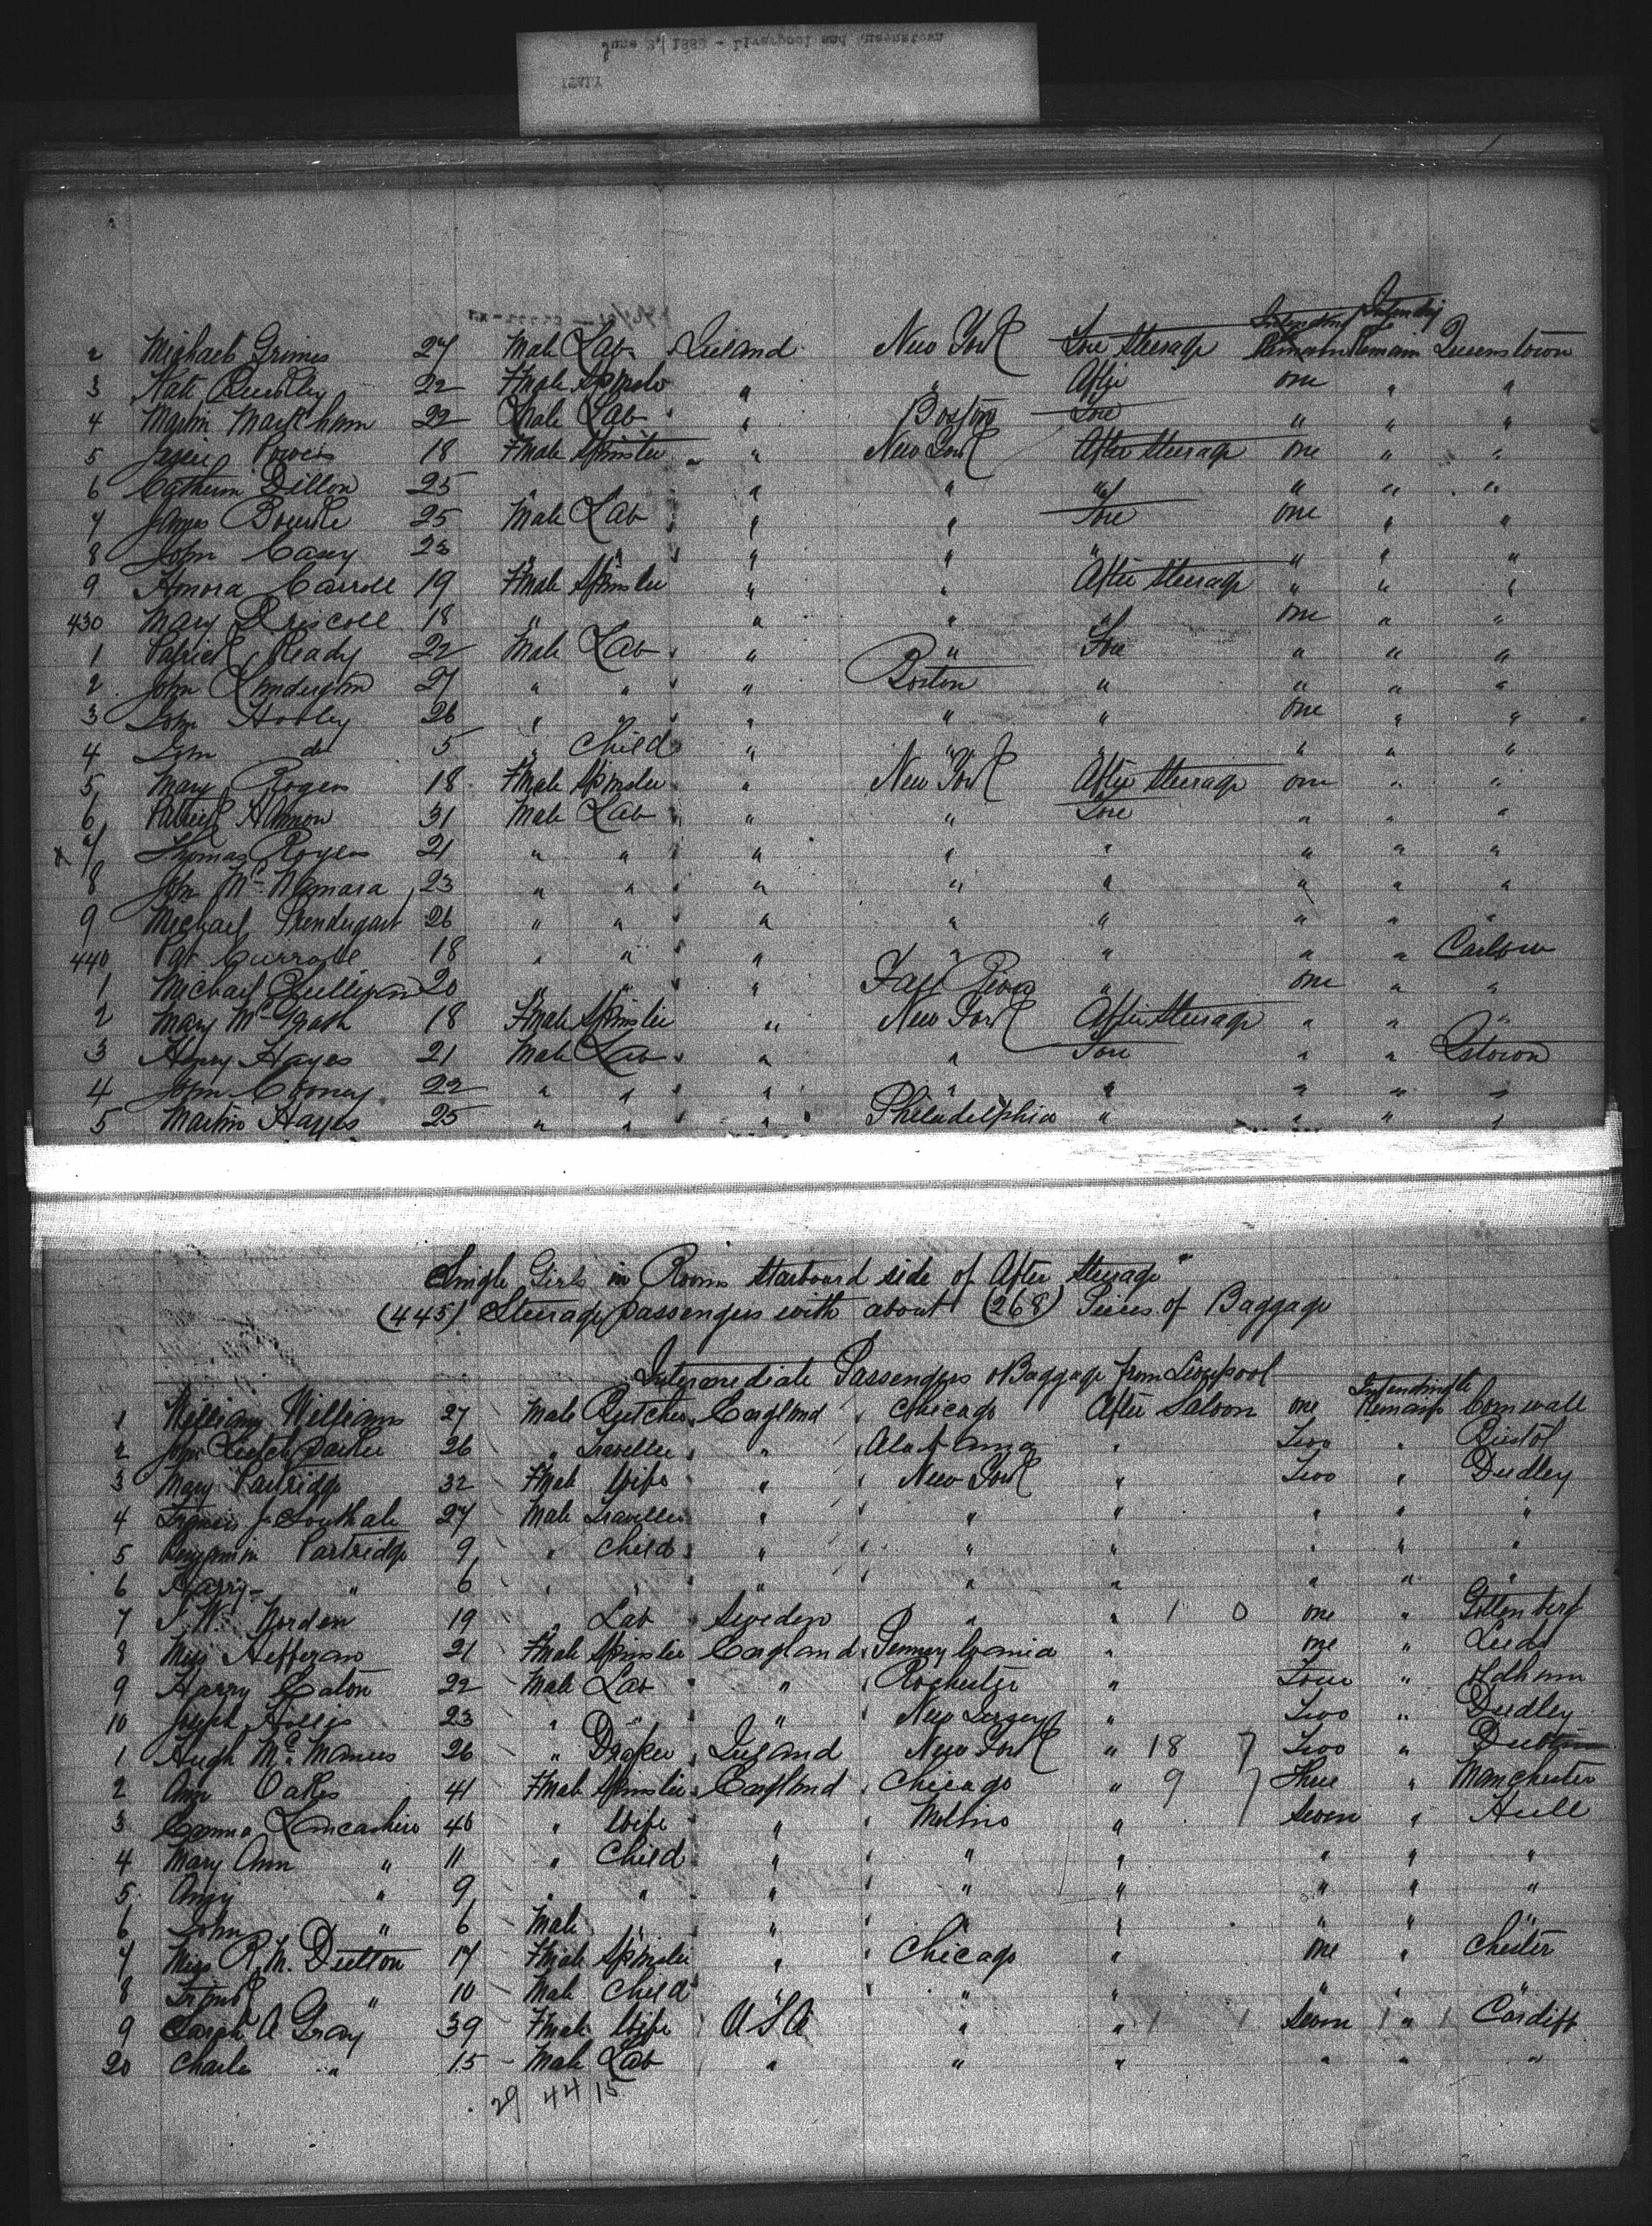 June 3/ 1889 - Liverpool and Queenstown
ITALY
2 Michael Grimes 27 Male Lab Ireland New York Fore Steerage Intending to Remain Queenstown
3 Kate 22 Fmale Spinster " " After one " "
4 Martin Markham 22 Male Lab " Boston Fore " " "
5 Powers 18 Fmale Spinster " New York After Steerage one " "
6 Catherin Dillon 25 " " " " " " "
7 James Bourke 25 Male Lab " " Fore one " "
8 John Casey 23 " " " " " " " "
9 Honora Carroll 19 Fmale Spinster " " After Steerage " " "
430 Mary Driscoll 18 " " " " one " "
1 Patrick Ready 22 Male Lab " " Fore " " "
2 John 27 " " " Boston " " " "
3 John Hooley 26 " " " " " one " "
4 do 5 " Child " " " " " "
5 Mary Rogers 18 Fmale Spinster " New York After Steerage one " "
6 Patrick 31 Male Lab " " Fore " " "
x 7 Thomas Rogers 21 " " " " " " " "
8 John McNamara 23 " " " " " " " "
9 Michael Prendergast 26 " " " " " " " "
440 Pat 18 " " " " " " " Carlow
1 Michael 20 " " " Fall River " one " "
2 Mary McGrath 18 Fmale Spinster " New York After Steerage " " "
3 Henry Hayes 21 Male Lab " " Fore " " Qstown
4 John Cooney 22 " " " " " " " "
5 Martin Hayes 25 " " " Philadelphia " " " "
Single Girls in Rooms Starboard side of After Steerage
(445) Steerage Passengers with about (268) Pieces of Baggage
Intermediate Passengers & Baggage from Liverpool
1 William Williams 27 Male Butcher England Chicago After Saloon one Intending to Remain Cornwall
2 John Parker 26 " Traveller " Alabama " Two " Bristol
3 Mary Partridge 32 Fmale Wife " New York " Two " Dudley
4 Francis J Southall 27 Male Traveller " " " " " "
5 Benjamin Partridge 9 " Child " " " " " "
6 Harry " 6 " " " " " " " "
7 Norden 19 " Lab Sweden " " 1 0 one " Gottenberg
8 Miss Heffernan 21 Fmale Spinster England Pennsylvania " one " Leeds
9 Harry Eaton 22 Male Lab " Rochester " Four " Oldham
10 Joseph Hollis 23 " " " New Jersey " Two " Dudley
1 Hugh McManus 26 " Draper Ireland New York " 18 7 Two " Dublin
2 Ann Oakes 41 Fmale Spinster England Chicago " 9 7 Three " Manchester
3 Emma Lancashire 40 " Wife " Moline " Seven " Hull
4 Mary Ann " 11 " Child " " " " " "
5 Amy " 9 " " " " " " " "
6 John " 6 Male " " " " " " "
7 Miss R.M. Dutton 17 Fmale Spinster " Chicago " one " Chester
8 Frank " 10 Male Child " " " " " "
9 Sarah A Gray 39 Fmale Wife USA " " 1 1 Seven 1 " 1 Cardiff
20 Charles " 15 Male Lab " " " " " "
29 44 15